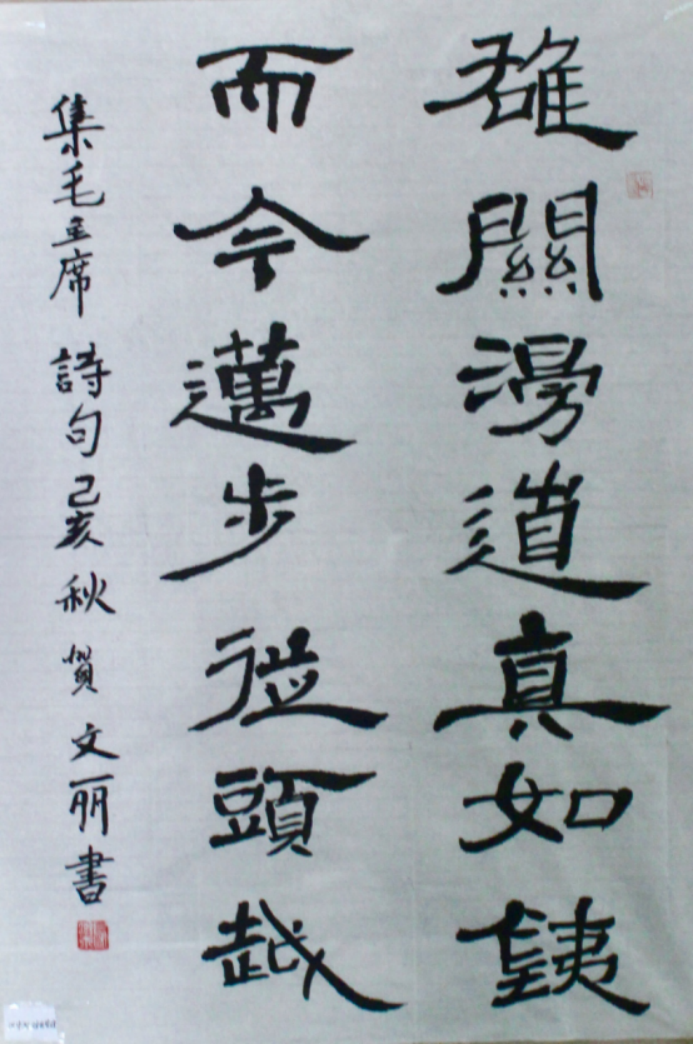 雄關漫道真如銕
而今邁步從頭越
集毛主席詩句己亥秋賀文丽書